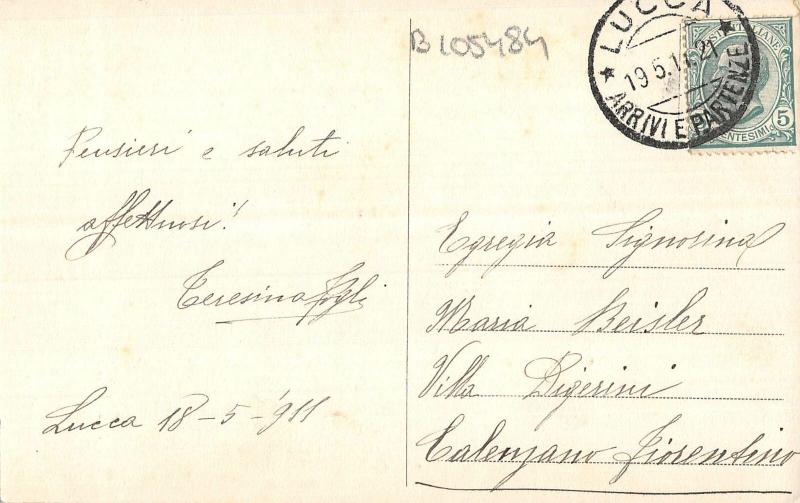 B105484
LUCCA
19.5.11.21
ARRIVI E PARTENZE
POSTE ITALIANE
CENTESIMI 5
Pensieri e saluti
affettuosi!
Teresina
Lucca 18-5-'911
Egregia Signorina
Maria Beisler
Villa Digerini
Calenzano Fiorentino